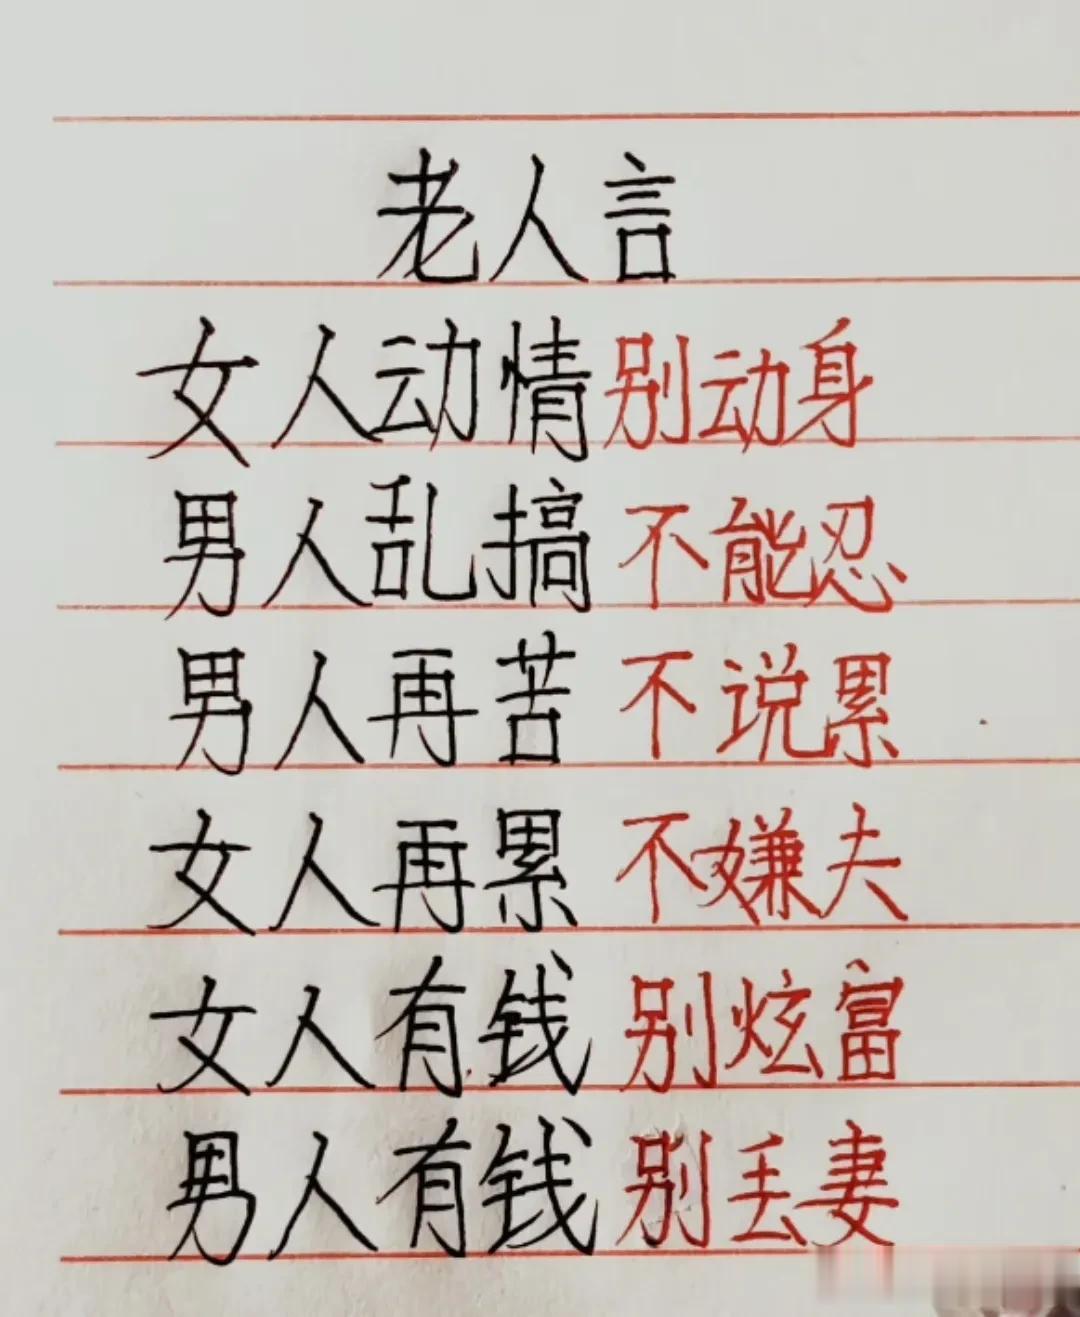 老人言
女人动情别动身
男人乱搞不能忍
男人再苦不说累
女人再累不嫌夫
女人有钱别炫富
男人有钱别丢妻